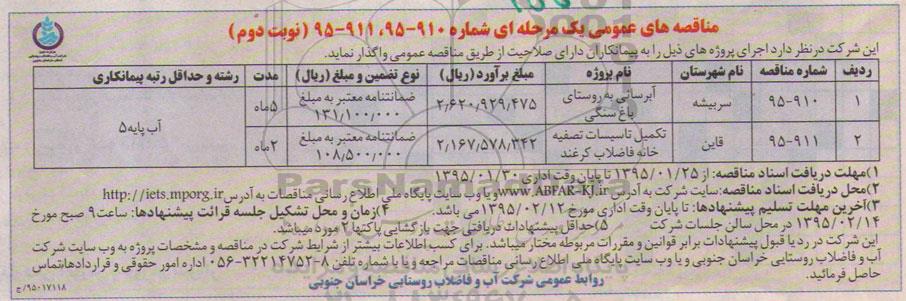 مناقصه های عمومی یک مرحله ای شماره ۹۱۰-۹۵، ۹۱۱-۹۵ (نوبت دوم)
این شرکت درنظر دارد اجرای پروژه های ذیل را به پیمانکاران دارای صلاحیت از طریق مناقصه عمومی واگذار نماید.
ردیف شماره مناقصه نام شهرستان نام پروژه مبلغ برآورد (ریال) نوع تضمین و مبلغ (ریال) مدت رشته و حداقل رتبه پیمانکاری
۱ ۹۱۰-۹۵ سربیشه آبرسانی به روستای باغ سنگی ۲٫۶۲۰٫۹۲۹٫۴۷۵ ضمانتنامه معتبر به مبلغ ۱۳۱٫۱۰۰٫۰۰۰ ۵ماه آب پایه۵
۲ ۹۱۱-۹۵ قاین تکمیل تاسیسات تصفیه خانه فاضلاب کرغند ۲٫۱۶۷٫۵۷۸٫۳۴۲ ضمانتنامه معتبر به مبلغ ۱۰۸٫۵۰۰٫۰۰۰ ۲ماه
۱)مهلت دریافت اسناد مناقصه: از ۱۳۹۵/۰۱/۲۵ تا پایان وقت اداری ۱۳۹۵/۰۱/۳۰
۲)محل دریافت اسناد مناقصه:سایت شرکت به آدرس www.ABFAK-KJ.ir و یا وب سایت پایگاه ملی اطلاع رسانی مناقصات به آدرس http://iets.mporg.ir
۳)آخرین مهلت تسلیم پیشنهادها: تا پایان وقت اداری مورخ ۱۳۹۵/۰۲/۱۲ می باشد. ۴)زمان و محل تشکیل جلسه قرائت پیشنهادها: ساعت۹ صبح مورخ
۱۳۹۵/۰۲/۱۴ در محل سالن جلسات شرکت ۵)حداقل پیشنهادات دریافتی جهت بازگشایی پاکتها ۲ مورد میباشد.
این شرکت در رد یا قبول پیشنهادات برابر قوانین و مقررات مربوطه مختار میباشد. برای کسب اطلاعات بیشتر از شرایط شرکت در مناقصه و مشخصات پروژه به وب سایت شرکت
آب و فاضلاب روستایی خراسان جنوبی و یا وب سایت پایگاه ملی اطلاع رسانی مناقصات مراجعه و یا با شماره تلفن ۸-۳۲۲۱۴۷۵۲-۰۵۶ اداره امور حقوقی و قراردادها،تماس
حاصل فرمائید.
روابط عمومی شرکت آب و فاضلاب روستایی خراسان جنوبی
۹۵۰۱۷۱۱۸/ج